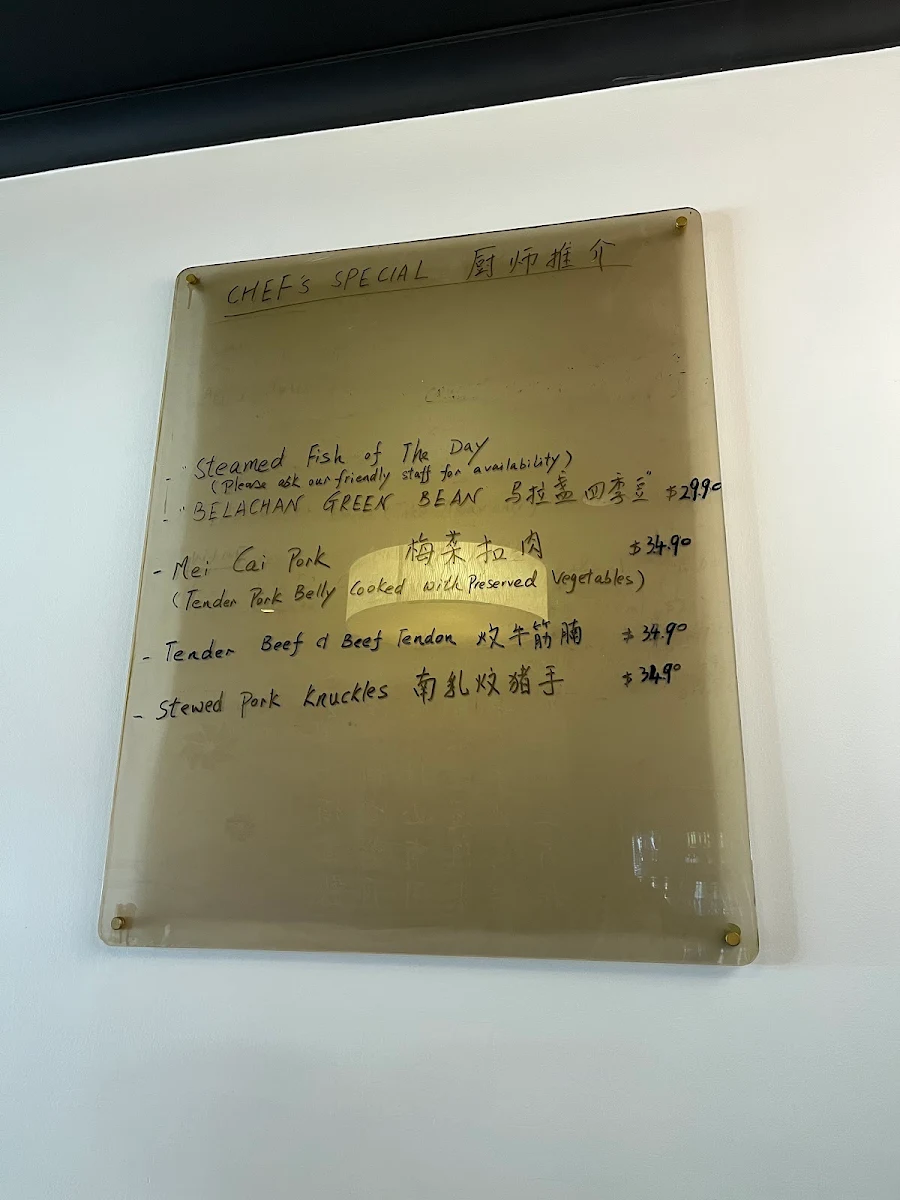 CHEF'S SPECIAL 厨师推介
- "Steamed Fish of The Day
(Please ask our friendly staff for availability)
"BELACHAN GREEN BEAN 马拉盏四季豆" $29.90
- Mei Cai Pork 梅菜扣肉 $34.90
(Tender Pork Belly Cooked with Preserved Vegetables)
- Tender Beef & Beef Tendon 炆牛筋腩 $34.90
- Stewed Pork Knuckles 南乳炆猪手 $34.90